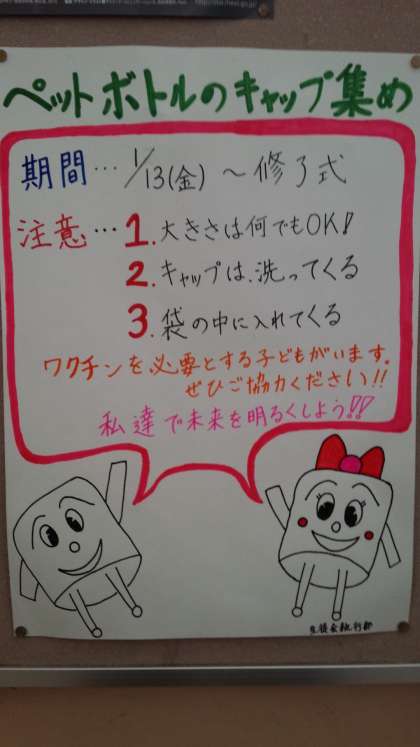 ペットボトルのキャップ集め
期間… 1/13(金) ～修了式
注意… 1. 大きさは何でもOK!
2. キャップは、洗ってくる
3. 袋の中に入れてくる
ワクチンを必要とする子どもがいます。
ぜひご協力ください!!
私達で未来を明るくしよう!!
生徒会執行部